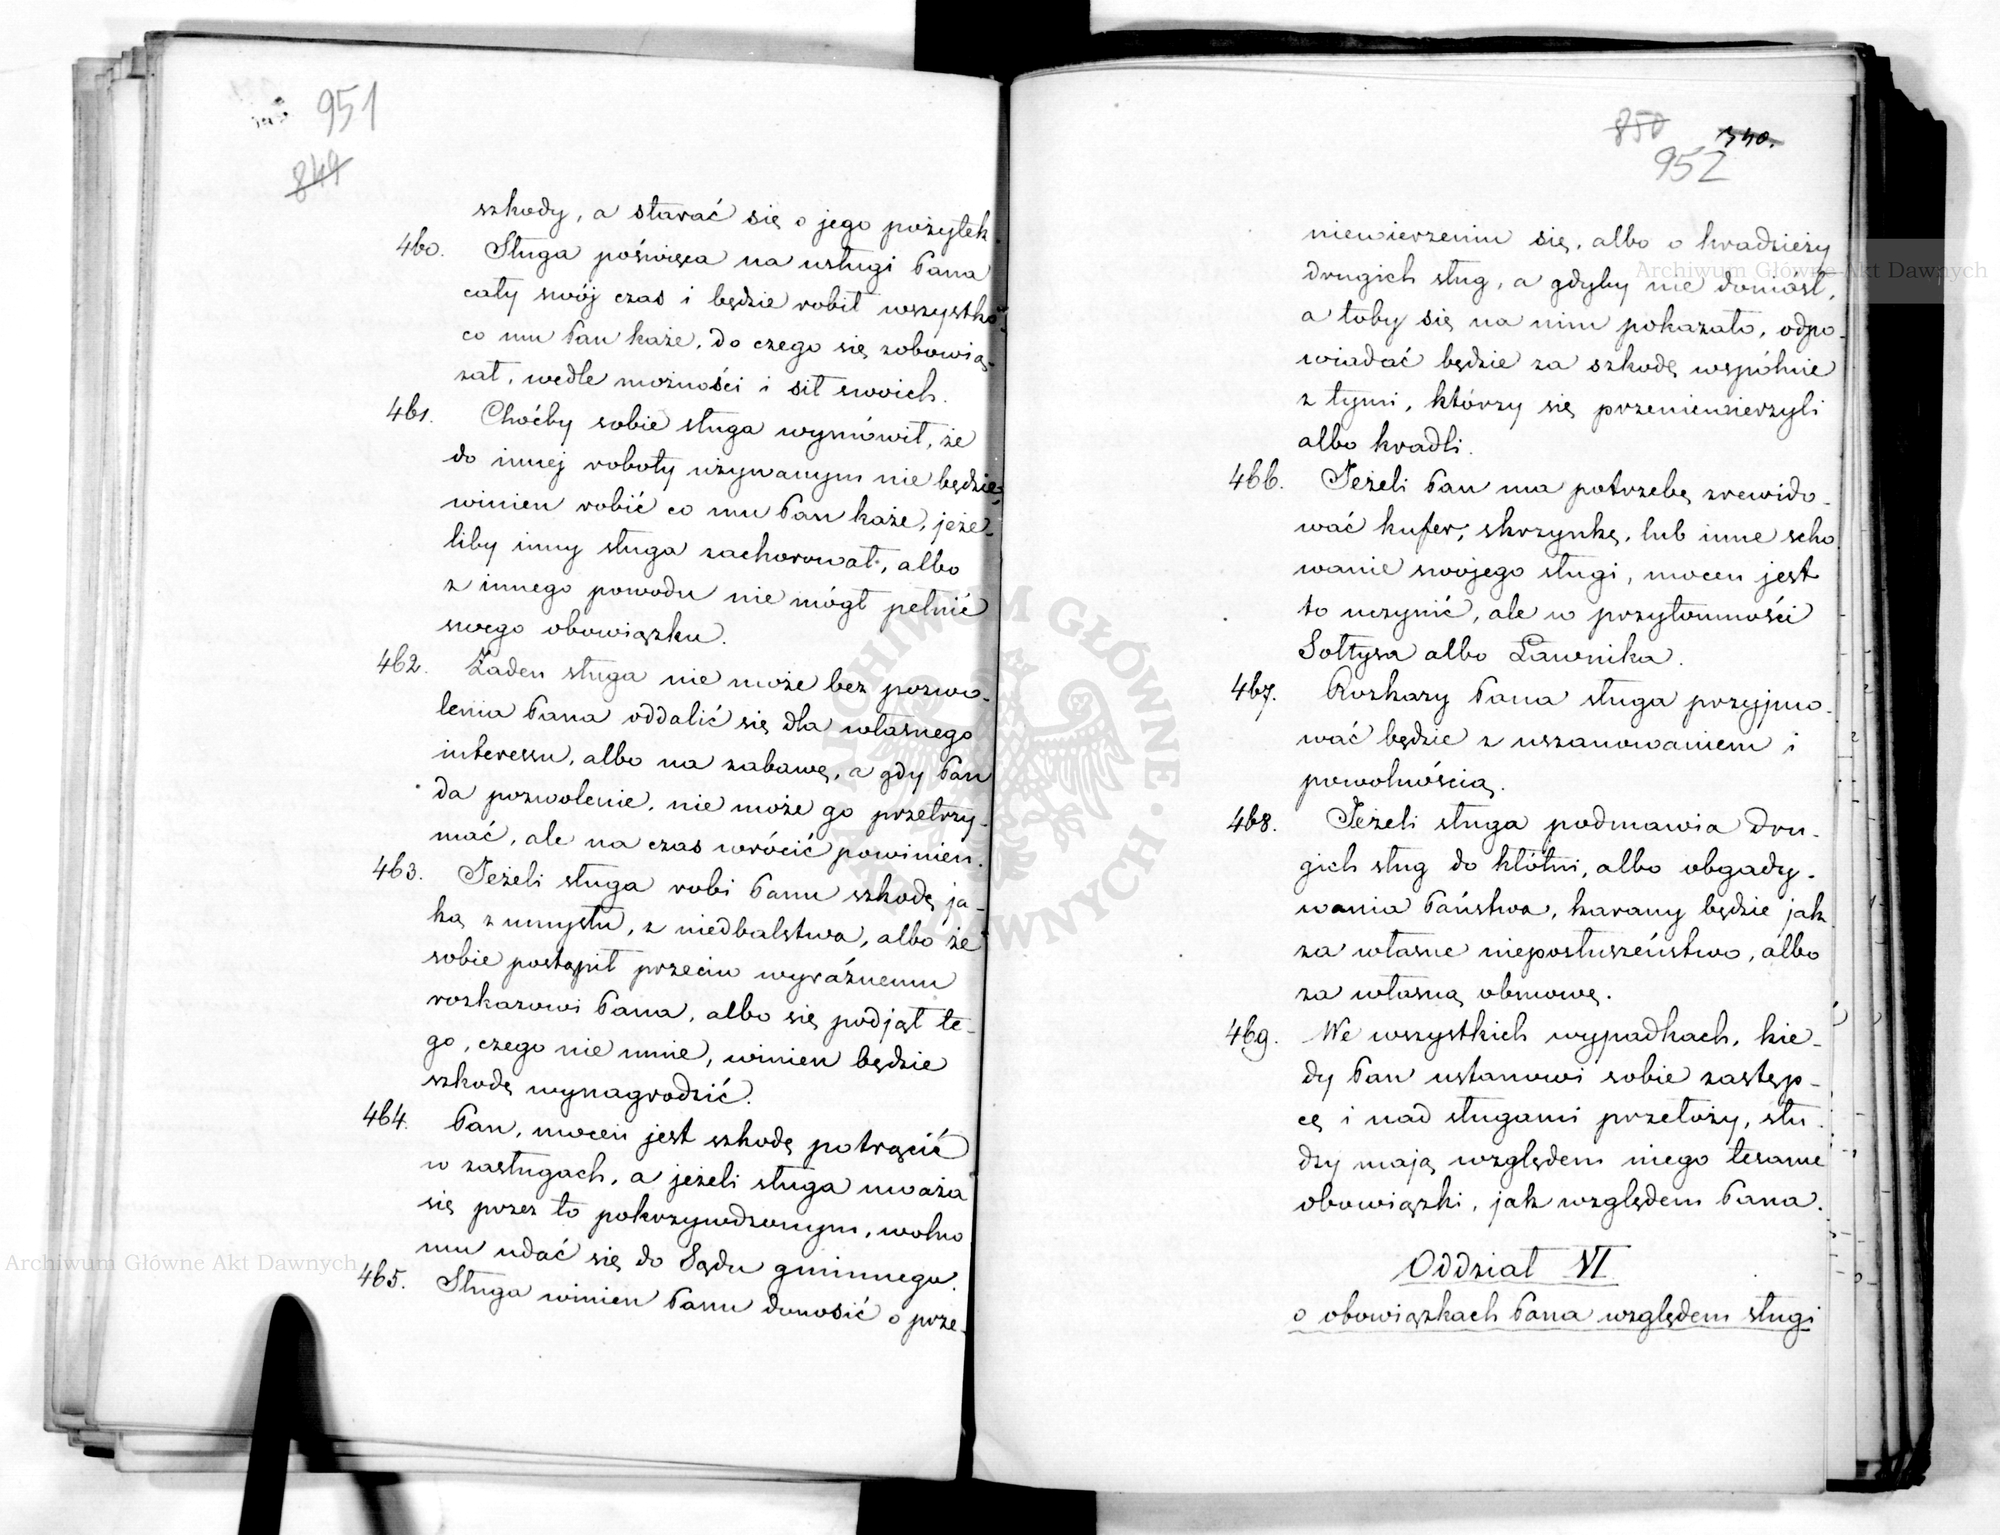 951
849
szkody, a starać się o jego pożytek
460. Sługa poświęca na usługi Pana
cały swój czas i będzie robił wszystko
co mu Pan każe, do czego się zobowią-
zał, wedle możności i sił swoich.
461. Choćby sobie sługa wymówił, że
do innej roboty używanym nie będzie,
winien robić co mu Pan każe, jeże-
liby inny sługa zachorował, albo
z innego powodu nie mógł pełnić
swego obowiązku.
462. Żaden sługa nie może bez pozwo-
lenia Pana oddalić się dla własnego
interessu, albo na zabawę, a gdy Pan
da pozwolenie, nie może go przetrzy-
mać, ale na czas wrócić powinien.
463. Jeżeli sługa robi Panu szkodę ja-
ką z umysłu, z niedbalstwa, albo że
sobie postąpił przeciw wyraźnemu
rozkazowi Pana, albo się podjął te-
go, czego nie umie, winien będzie
szkodę wynagrodzić.
464. Pan, mocen jest szkodę potrącić
w zasługach, a jeżeli sługa uważa
się przez to pokrzywdzonym, wolno
mu udać się do Sądu gminnego.
465. Sługa winien Panu donosić o prze-
850 340.
952
niewierzeniu się, albo o kradzieży
drugich sług, a gdyby nie doniósł,
a toby się na nim pokazało, odpo-
wiadać będzie za szkodę wspólnie
z tymi, którzy się przeniewierzyli
albo kradli.
466. Jeżeli Pan ma potrzebę zrewido-
wać kufer, skrzynkę, lub inne scho
wanie swojego sługi, mocen jest
to uczynić, ale w przytomności
Sołtysa albo Ławnika.
467. Rozkazy Pana sługa przyjmo-
wać będzie z uszanowaniem i
powolnością.
468. Jeżeli sługa podmawia dru-
gich sług do kłótni, albo obgady-
wania Państwa, karany będzie jak
za własne nieposłuszeństwo, albo
za własną obmowę.
469. We wszystkich wypadkach, kie-
dy Pan ustanowi sobie zastęp-
cę i nad sługami przełoży, słu-
dzy mają względem niego tesame
obowiązki, jak względem Pana.
Oddział VI
o obowiązkach Pana względem sługi
Archiwum Główne Akt Dawnych
Archiwum Główne Akt Dawnych
ARCHIWUM GŁÓWNE AKT DAWNYCH